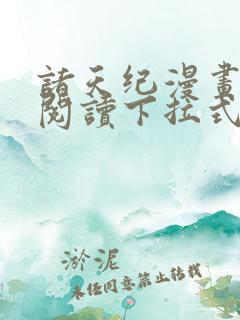 諸天纪漫畫
閱讀下拉式
淤泥
未经同意禁止转载